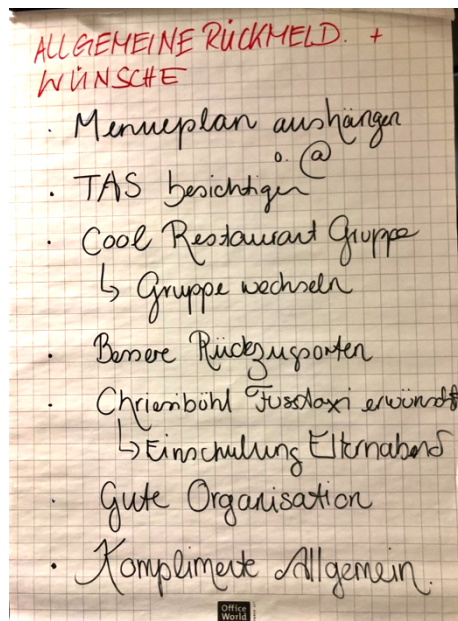 ALLGEMEINE RÜCKMELD. +
WÜNSCHE
· Menueplan aushängen
o. @
· TAS besichtigen
· Cool Restaurant Gruppe
↳ Gruppe wechseln
· Bessere Rückzugsorten
· Chriesibühl Fusstaxi erwünscht
↳ Einschulung Elternabend
· Gute Organisation
· Komplimente Allgemein.
Office
World